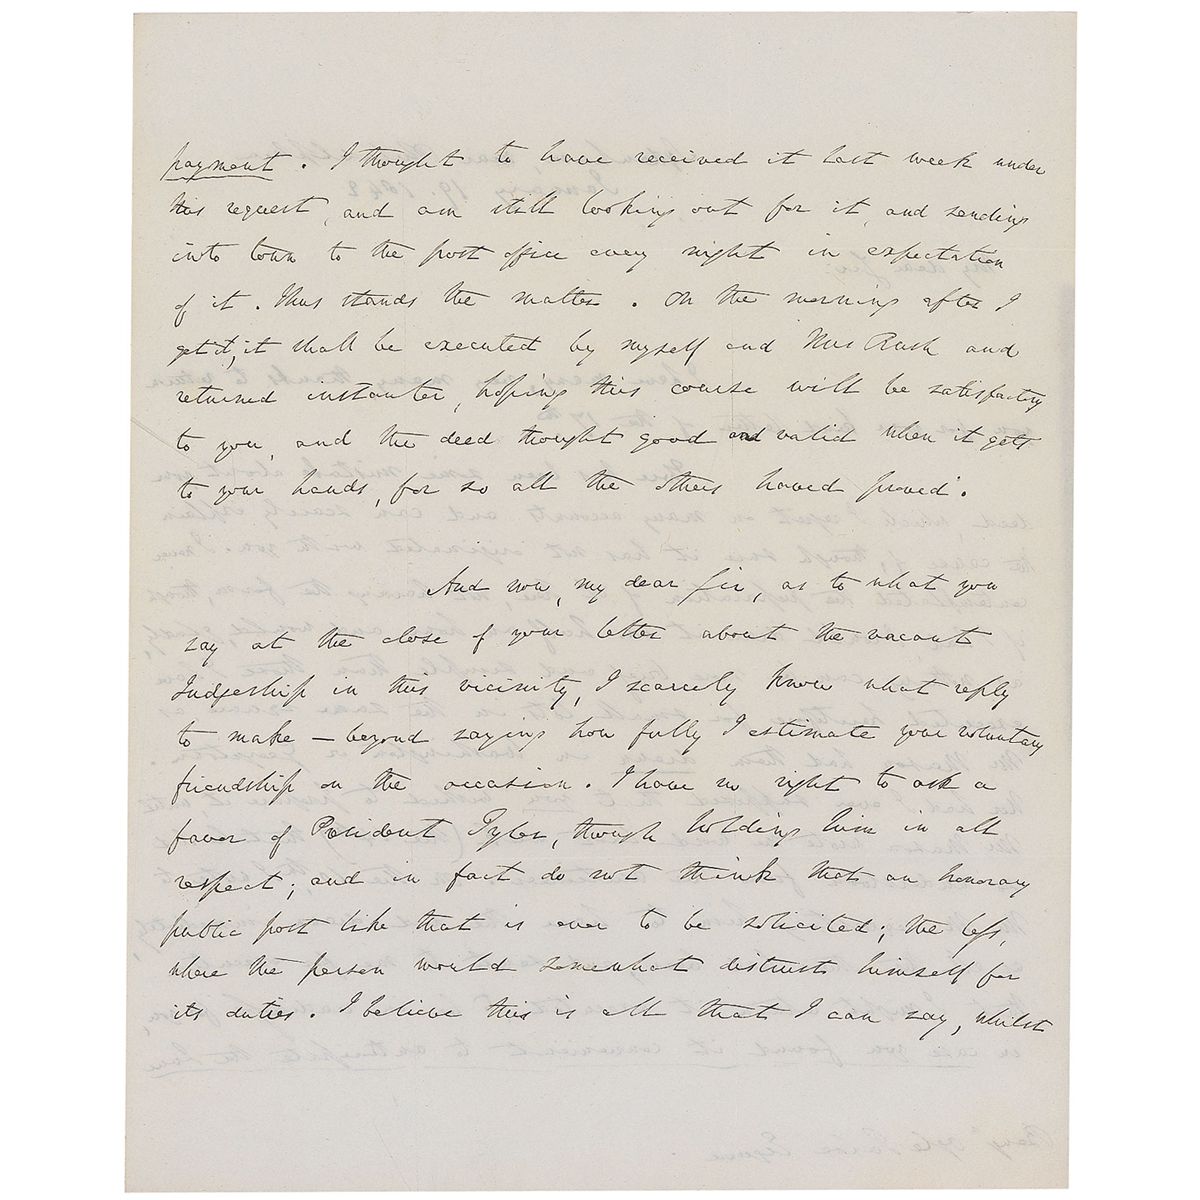 payment. I thought to have received it last week under
his request, and am still looking out for it, and sending
into town to the post office every night in expectation
of it. Thus stands the matter. On the morning after I
get it, it shall be executed by myself and Mrs Rush and
returned instanter, hoping this course will be satisfactory
to you, and the deed thought good and valid when it gets
to your hands, for so all the others haved proved.
And now, my dear Sir, as to what you
say at the close of your letter about the vacant
Judgeship in this vicinity, I scarcely know what reply
to make – beyond saying how fully I estimate your voluntary
friendship on the occasion. I have no right to ask a
favor of President Tyler, though holding him in all
respect; and in fact do not think that an honorary
public post like that is ever to be solicited; the less,
where the person would somewhat distrust himself for
its duties. I believe this is all that I can say, whilst